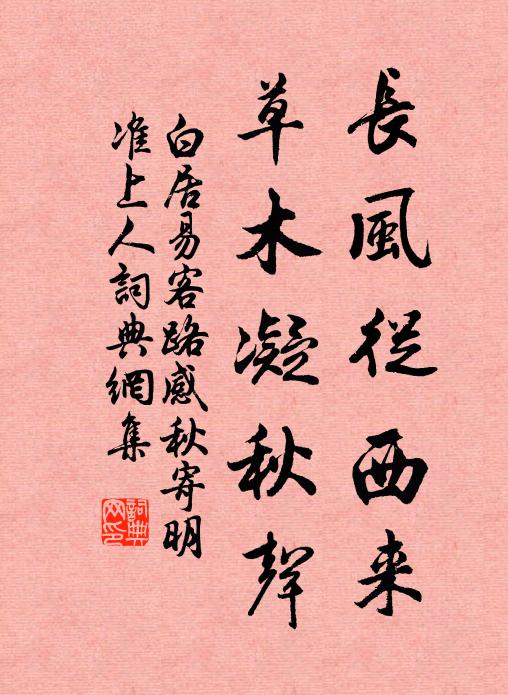 長風從西来
草木凝秋聲
白居易客路感秋寄明
准上人詞典網集
詞典
网印